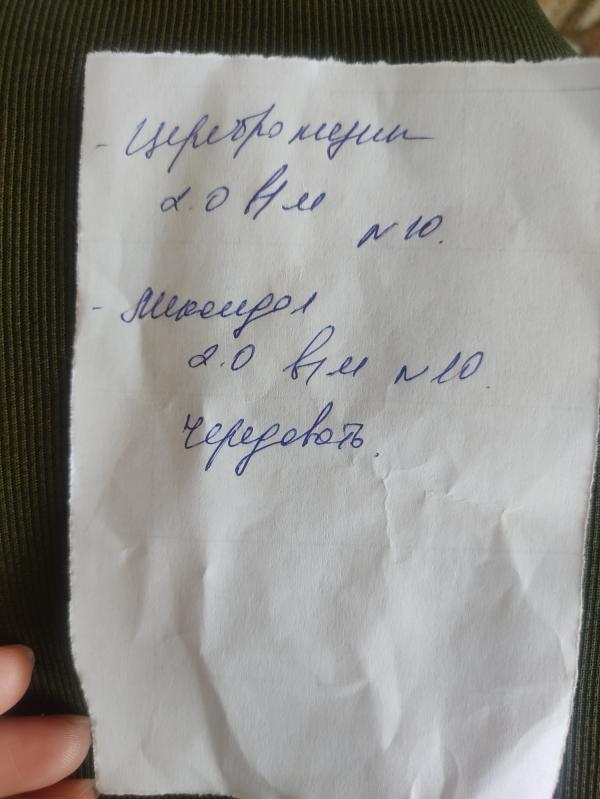 - Церебролизин
2.0 в/м
N 10.
- Мексидол
2.0 в/м N 10.
Чередовать.